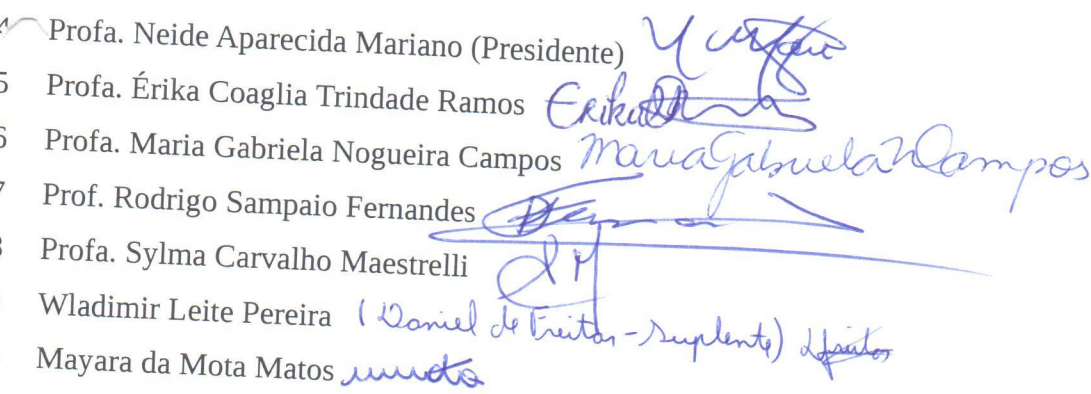 4 Profa. Neide Aparecida Mariano (Presidente)
5 Profa. Érika Coaglia Trindade Ramos Erika
6 Profa. Maria Gabriela Nogueira Campos Maria Gabriela N Campos
7 Prof. Rodrigo Sampaio Fernandes
8 Profa. Sylma Carvalho Maestrelli SM
Wladimir Leite Pereira (Daniel de Freitas - Suplente) Dfreitas
Mayara da Mota Matos